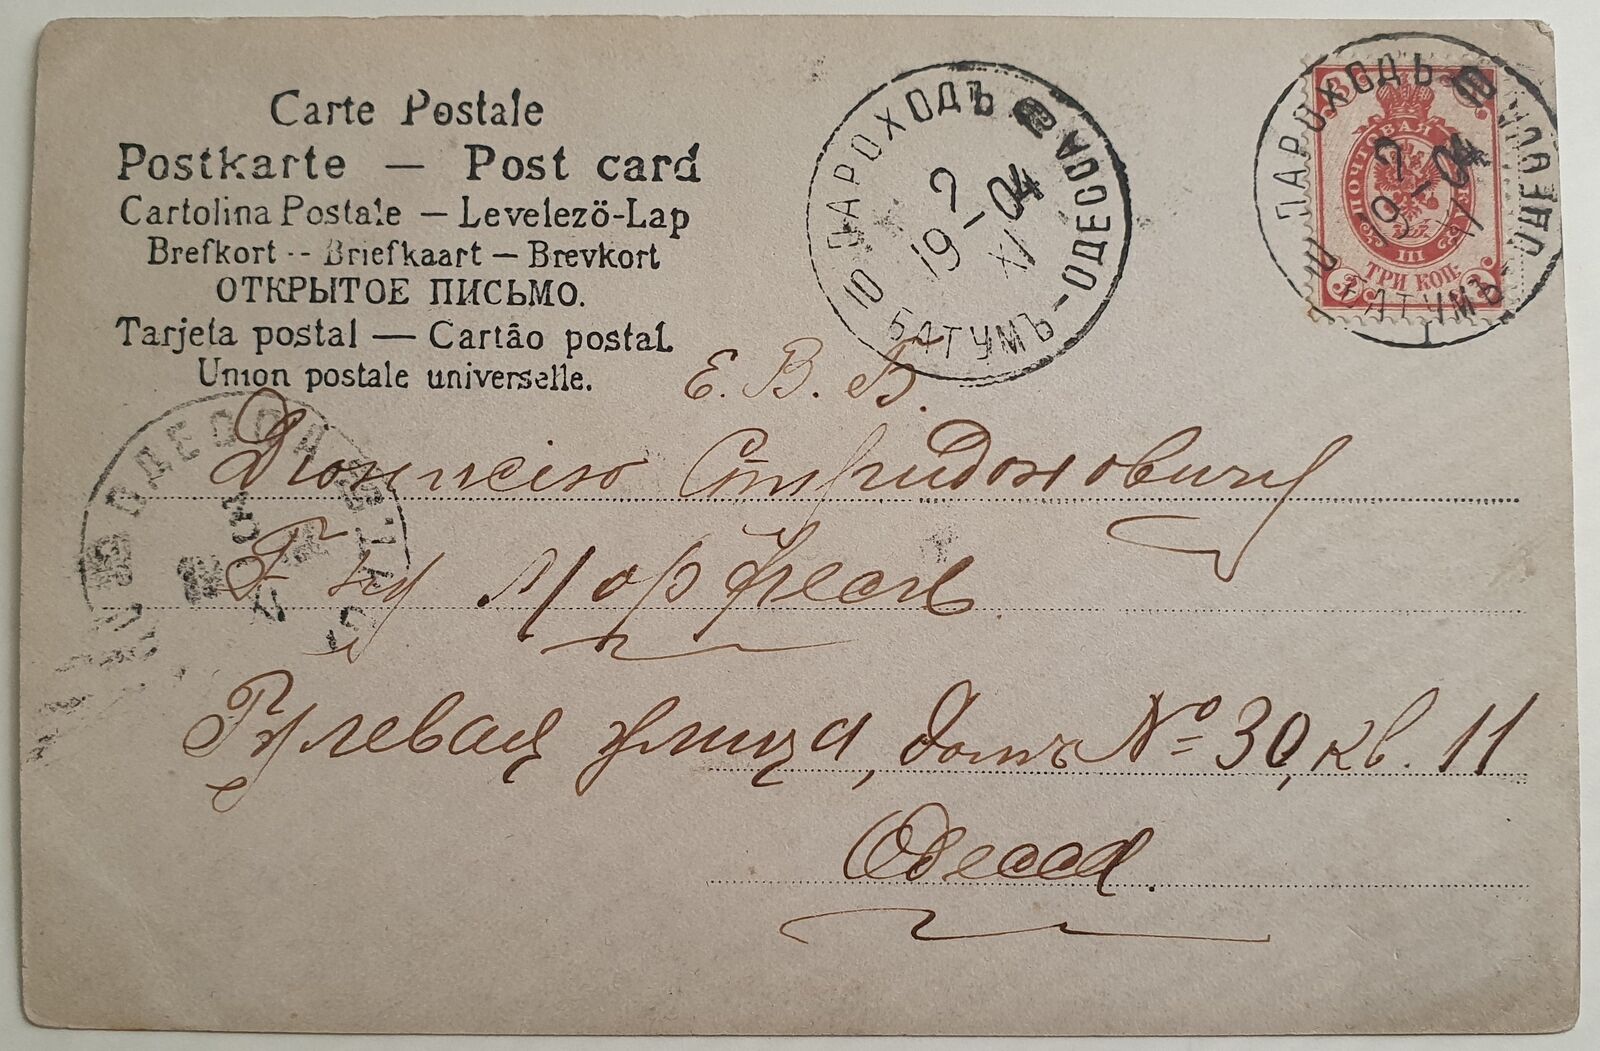 Carte Postale
Postkarte — Post card
Cartolina Postale — Levelező-Lap
Brefkort -- Briefkaart — Brevkort
ОТКРЫТОЕ ПИСЬМО.
Tarjeta postal — Cartão postal
Union postale universelle.
ПАРОХОДЪ
10 БАТУМЪ-ОДЕССА
7
19-04
XI
ПАРОХОДЪ
БАТУМЪ
7
19-04
XI
ПОЧТОВАЯ
III
ТРИ КОП.
3 3
ОДЕССА
Е. В. Б.
Дионисію Спиридоновичу
Г-ну
Гулевая улица, домъ № 30, кв. 11
Одесса.